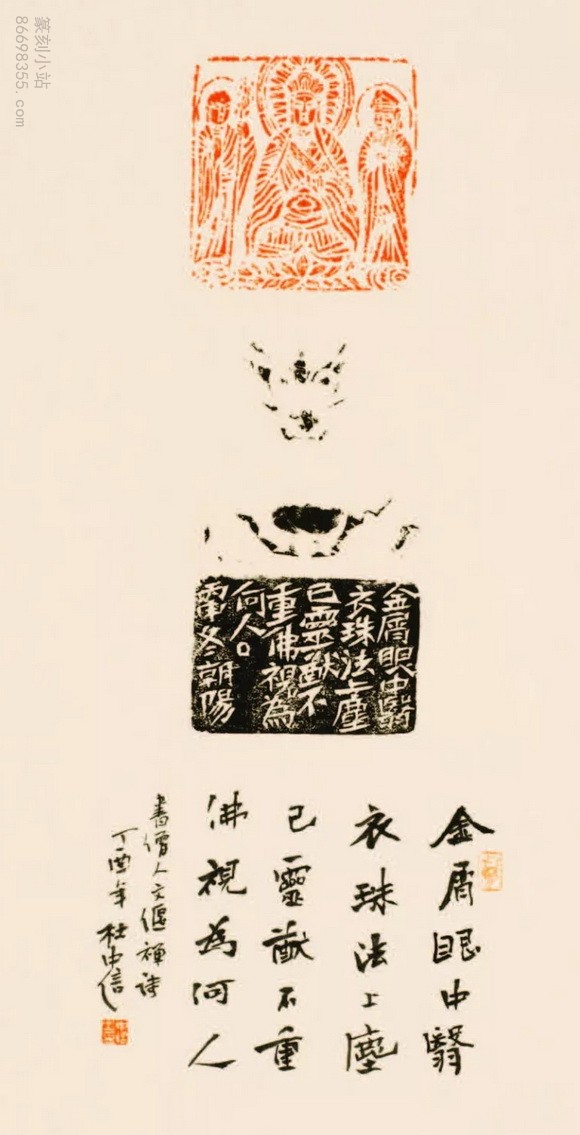 篆刻小站
86698355. com
金屑眼中翳
衣珠法上塵
己靈猷不
重佛視為
何人。
朝陽
金屑眼中翳
衣珠法上塵
己靈猷不重
佛視為何人
書僧人文偃禅诗
丁酉年杜中信